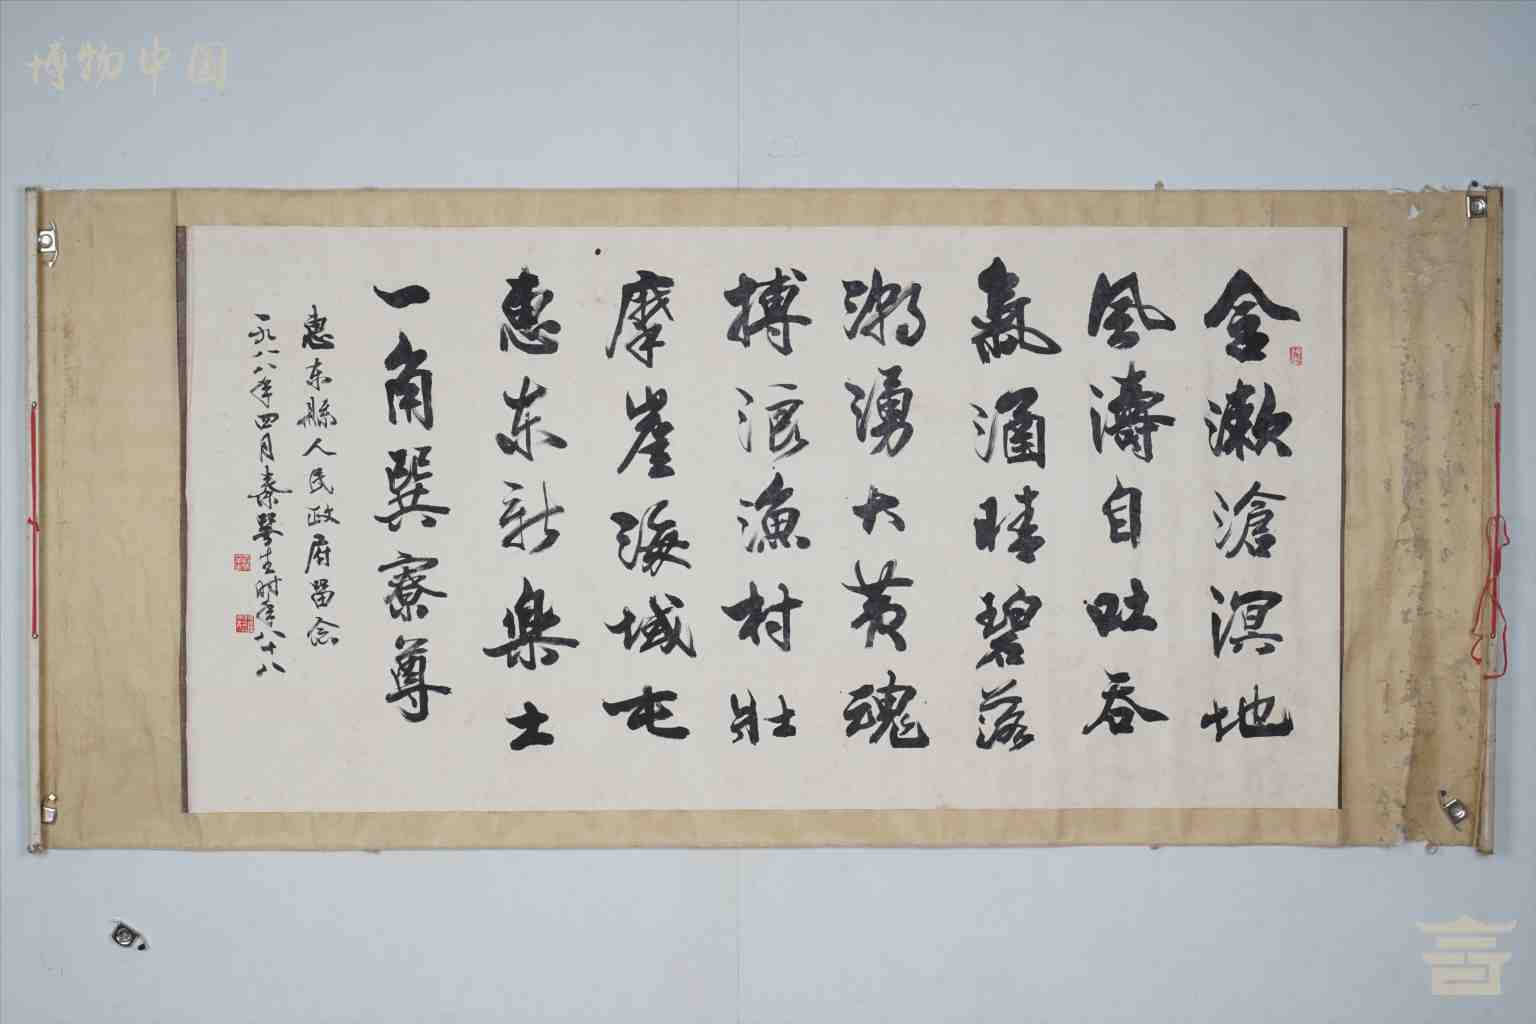 博物中国
金漱滄溟地
風濤自吐吞
氣涵晴碧落
潮湧大黄魂
搏浪漁村壯
摩崖海域屯
惠东新樂土
一角巽寮尊
惠东縣人民政府留念
一九八八年四月秦咢生时年八十八